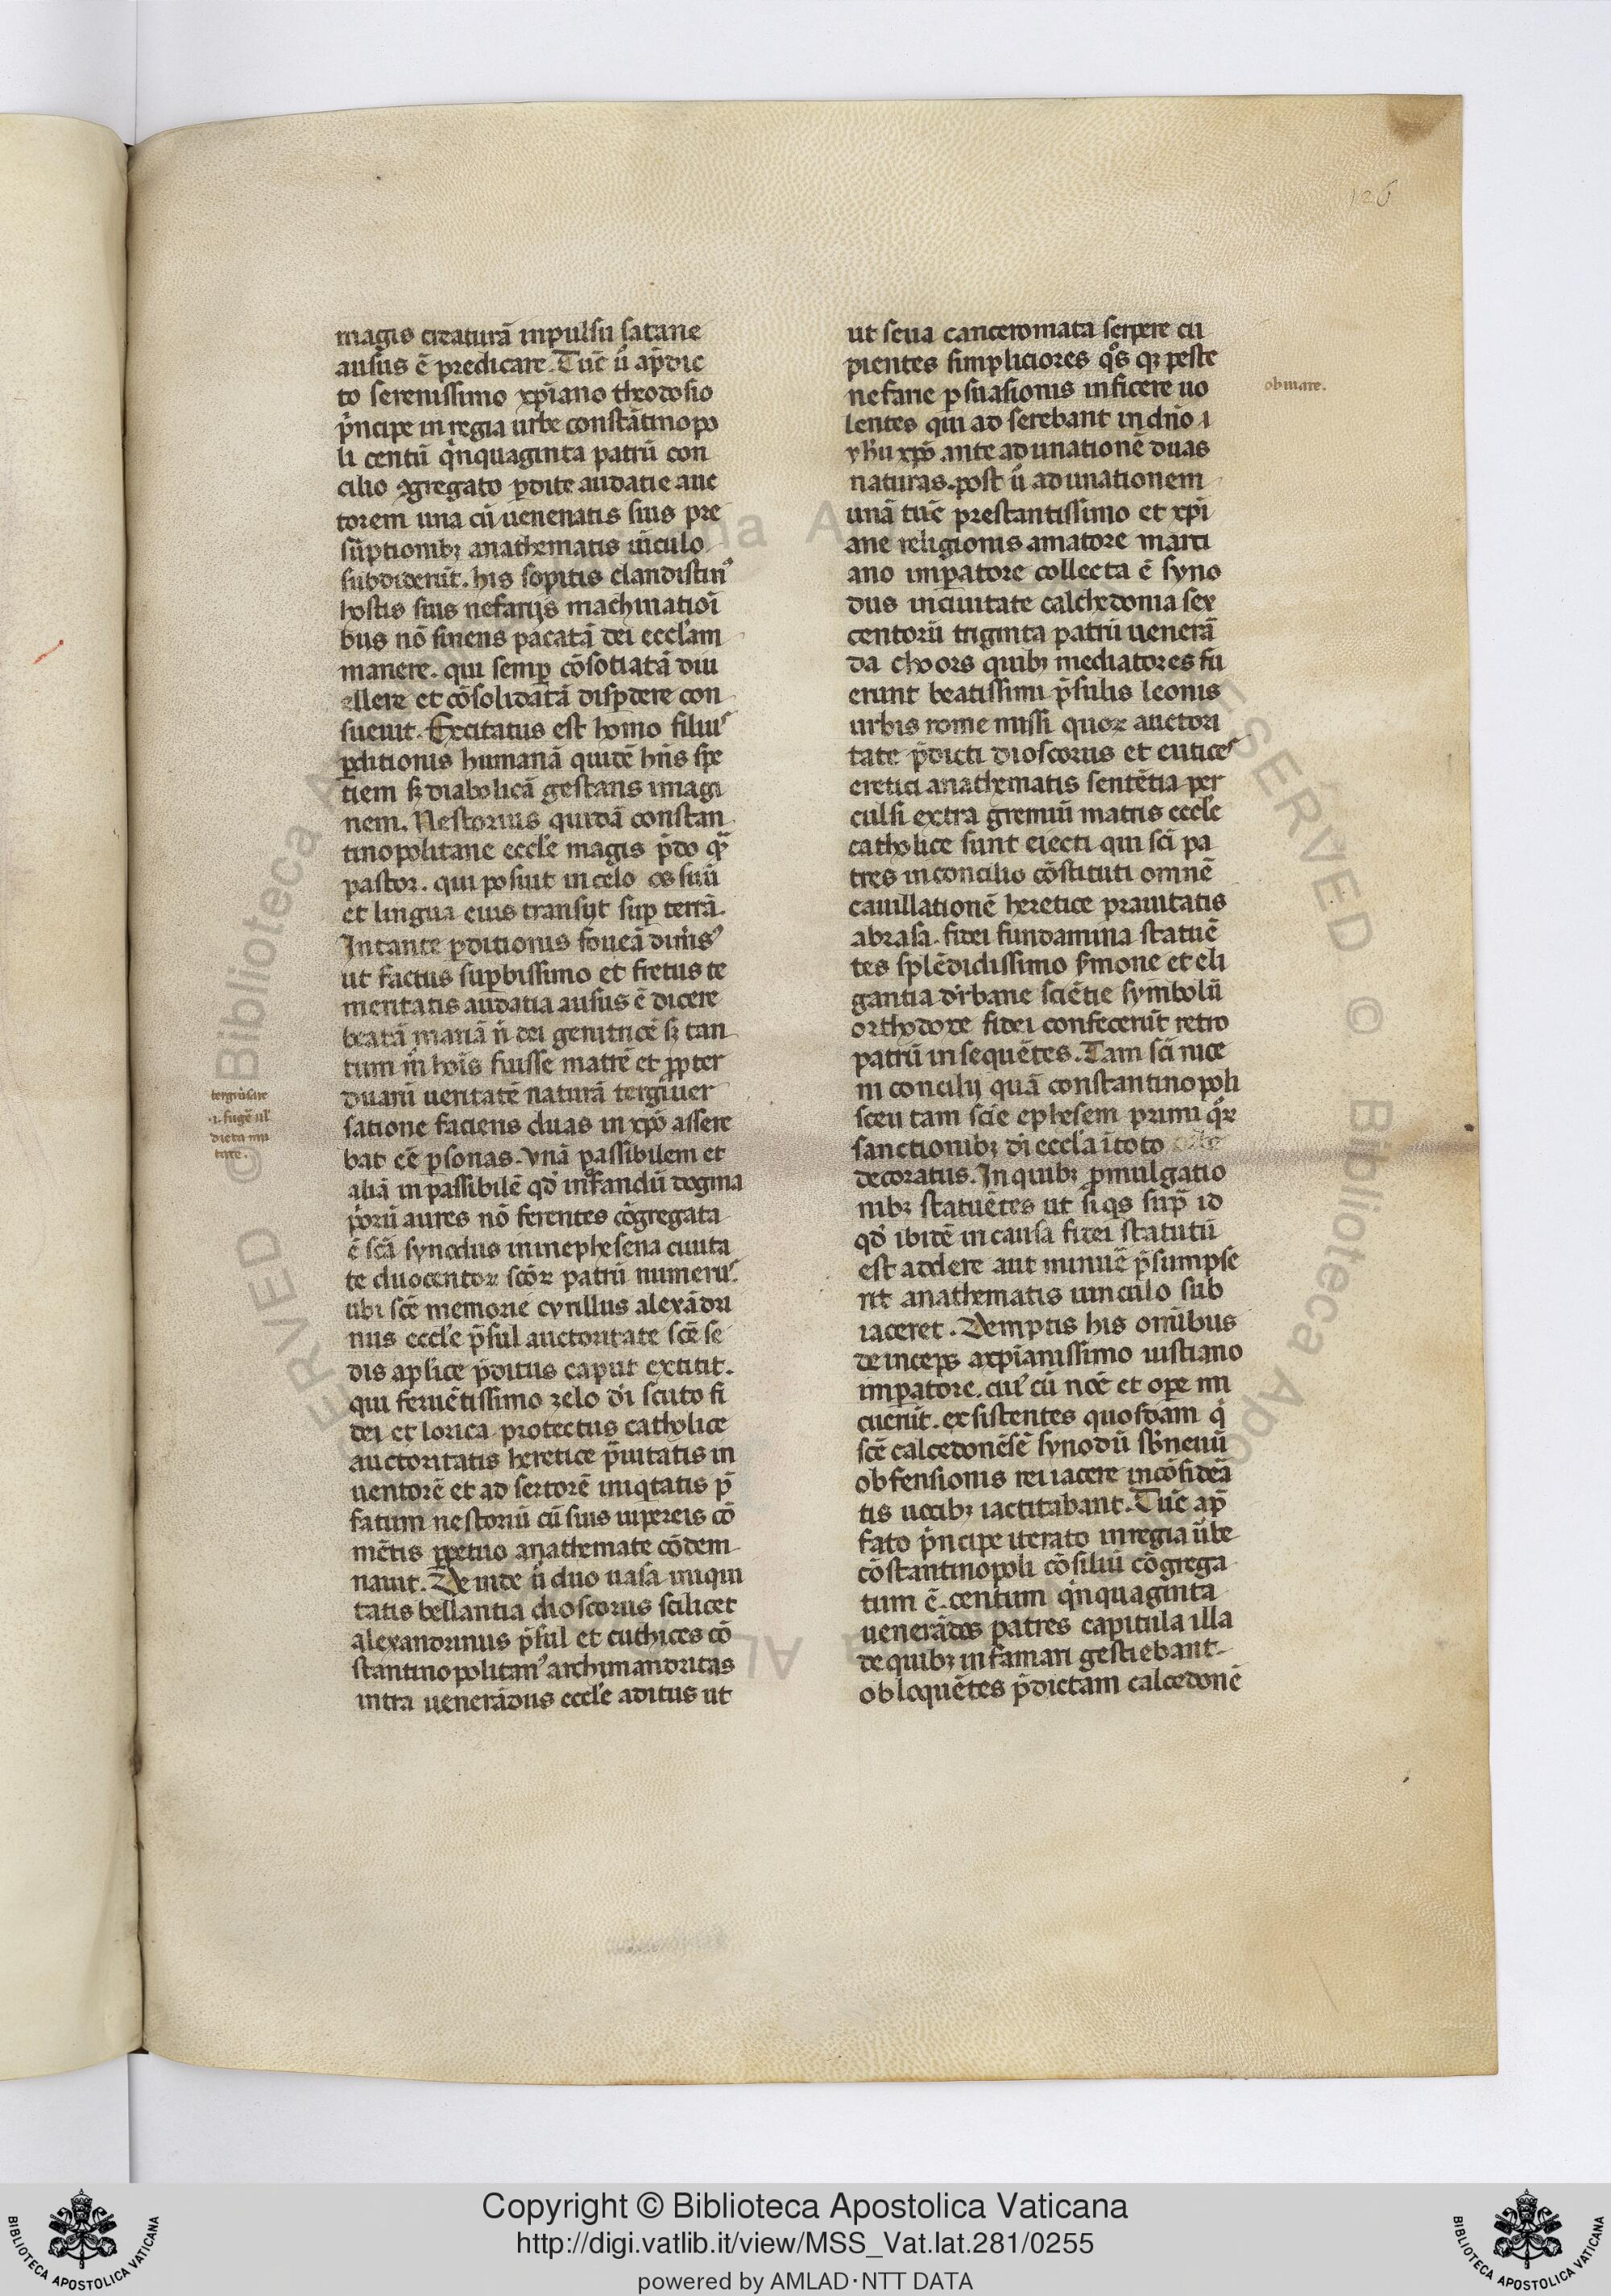 126
magis creaturā inpulsu satane
ausus ē predicare. Tūc ū ap̄dic
to serenissimo xp̄iano theodosio
p̄ncipe in regia urbe constātinopo
li centū q̄nquaginta patrū con
cilio ꝯgregato ꝑdite audatie auc
torem una cū uenenatis suis pre
sūptionibꝫ anathematis uīculo
subdiderūt. his sopitis clandistin᾽
hostis suis nefarijs machinatioī
bus nō sinens pacatā dei eccl'am
manere. qui semꝑ cōsotiatā diu
ellere et cōsolidatā disꝑdere con
sueuit. Excitatus est homo filius
ꝑditionis humanā quidē hn̄s spe
tiem sꝫ diabolicā gestans imagi
nem. Nestorius quidā constan
tinopolitane eccl'e magis p̄do qͣ̄
pastor. qui posiut in celo os suū
et lingua eius transijt suꝑ terrā.
In tante ꝑditionis foueā dim̄s᾽
ut factus suꝑbissimo et fretus te
meritatis audatia ausus ē dicere
beatā mariā n̄ dei genitricē sꝫ tan
tum m̄ hoīs fuisse matrē et ꝓpter
duarū ueritatē naturā tergiuer
satione faciens duas in xp̄o assere
bat eē ꝑsonas. vnā passibilem et
aliā inpassibilē qd̄ infandū dogma
p̄orū aures nō ferentes cōgregata
ē sc̄ā synodus in inephesena ciuita
te duocentoꝝ sc̄oꝝ patrū numerus.
ubi sc̄e memorie cyrillus alexādri
nus eccl'e p̄sul auctoritate sc̄e se
dis aplice p̄ditus caput extitit.
qui feruētissimo zelo d̄i scuto fi
dei et lorica protectus catholice
auctoritatis heretice p̄uitatis in
uentorē et ad sertorē iniqtatis p̄
fatum nestoriū cū suis uipereis cō
mētis ꝑpetuo anathemate cōdem
nauit. Deinde ū duo uasa iniqui
tatis bellantia dioscorus scilicet
alexandrinus p̄sul et euthices cō
stantinopolitan᾽ archimandritas
intra uenerādus eccl'e aditus ut
tergiūsare
.i. fugē ul'
ut seua canceromata serpere cu
pientes simpliciores qͦs qꝫ peste
nefarie ꝑsuasionis inficere uo
lentes qui ad serebant in dn̄o i
yhū xp̄o ante adunationē duas
naturas. post ū adunationem
unā tūc prestantissimo et xp̄i
ane religionis amatore marci
ano imꝑatore collecta ē syno
dus inciuitate calchedonia sex
centorū triginta patrū uenerā
da choors quibꝫ mediatores fu
erunt beatissimi p̄sulis leonis
urbis rome missi quoꝝ auctori
tate p̄dicti dioscorus et eutices
eretici anathematis sentētia per
culsi extra gremiū matris eccl'e
catholice sunt eiecti qui sc̄i pa
tres in concilio cōstituti omnē
cauillationē heretice prauitatis
abrasa. fidei fundamina statuē
tes splēdidissimo s̄mone et eli
gantia d'rbane sciētie symbolū
orthodoxe fidei confecerūt retro
patrū insequētes. Tam sc̄i nice
ni concilij quā constantinopoli
sceu tam sc̄ie ephesem primi qͦꝝ
sanctionibꝫ d̄i eccl'a ītoto
decoratus. In quibꝫ ꝓmulgatio
nibꝫ statuētes ut si qs suꝑ id
qd̄ ibidē in causa fidei statutū
est addere aut minuē p̄sumpse
rit anathematis uinculo sub
iaceret. Demptis his om̄ibus
deinceps axp̄ianissimo iustiano
imꝑatore. cui᾽ cū noīe et oꝑe mi
cuerūt. exsistentes quosdam q̄
sc̄e calcedonēsē synodū sb̄neruū
obfensionis rei iacere incōfidēā
tis uocibꝫ iactitabant. Tūc ap̄
fato p̄ncipe iterato in regia ūbe
cōstantinopoli cōsiliū cōgrega
tum ē. centum q̄nquaginta
uenerādos patres capitula illa
de quibꝫ infamari gestiebant
obloquētes p̄dictam calcedonē
obuiare.
Copyright © Biblioteca Apostolica Vaticana
http://digi.vatlib.it/view/MSS_Vat.lat.281/0255
powered by AMLAD·NTT DATA
BIBLIOTECA APOSTOLICA VATICANA
BIBLIOTECA APOSTOLICA VATICANA